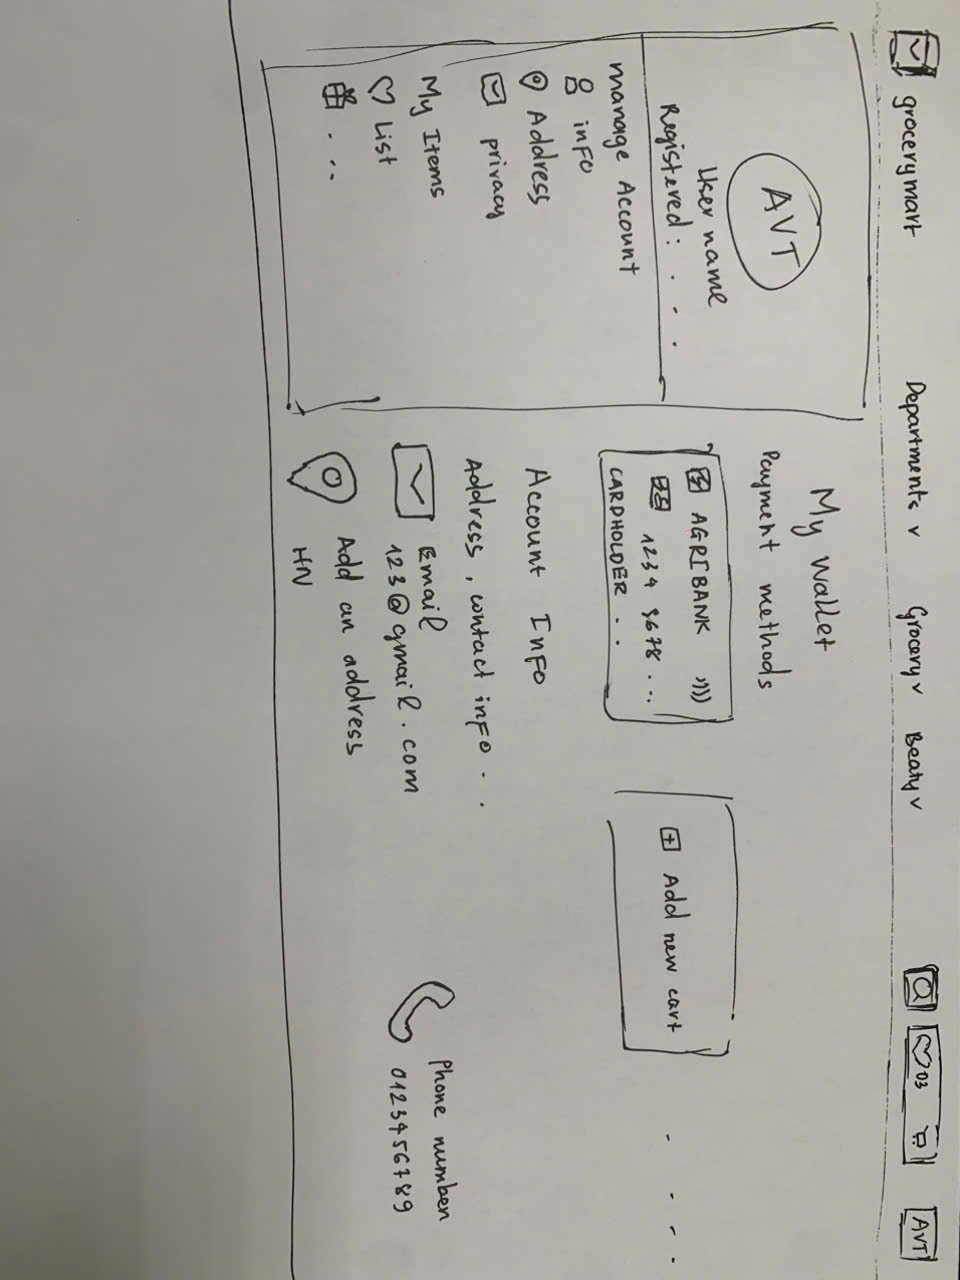 grocerymart Departments Grocery Beaty 03 AVT
AVT
User name
Registered: . . .
manage Account
info
Address
privacy
My Items
List
. . .
My Wallet
Payment methods
AGRIBANK
1234 5678 ...
CARDHOLDER . .
Add new cart
. . . .
Account Info
Address, contact info . .
Email
123@gmail.com
Phone number
0123456789
Add an address
HN